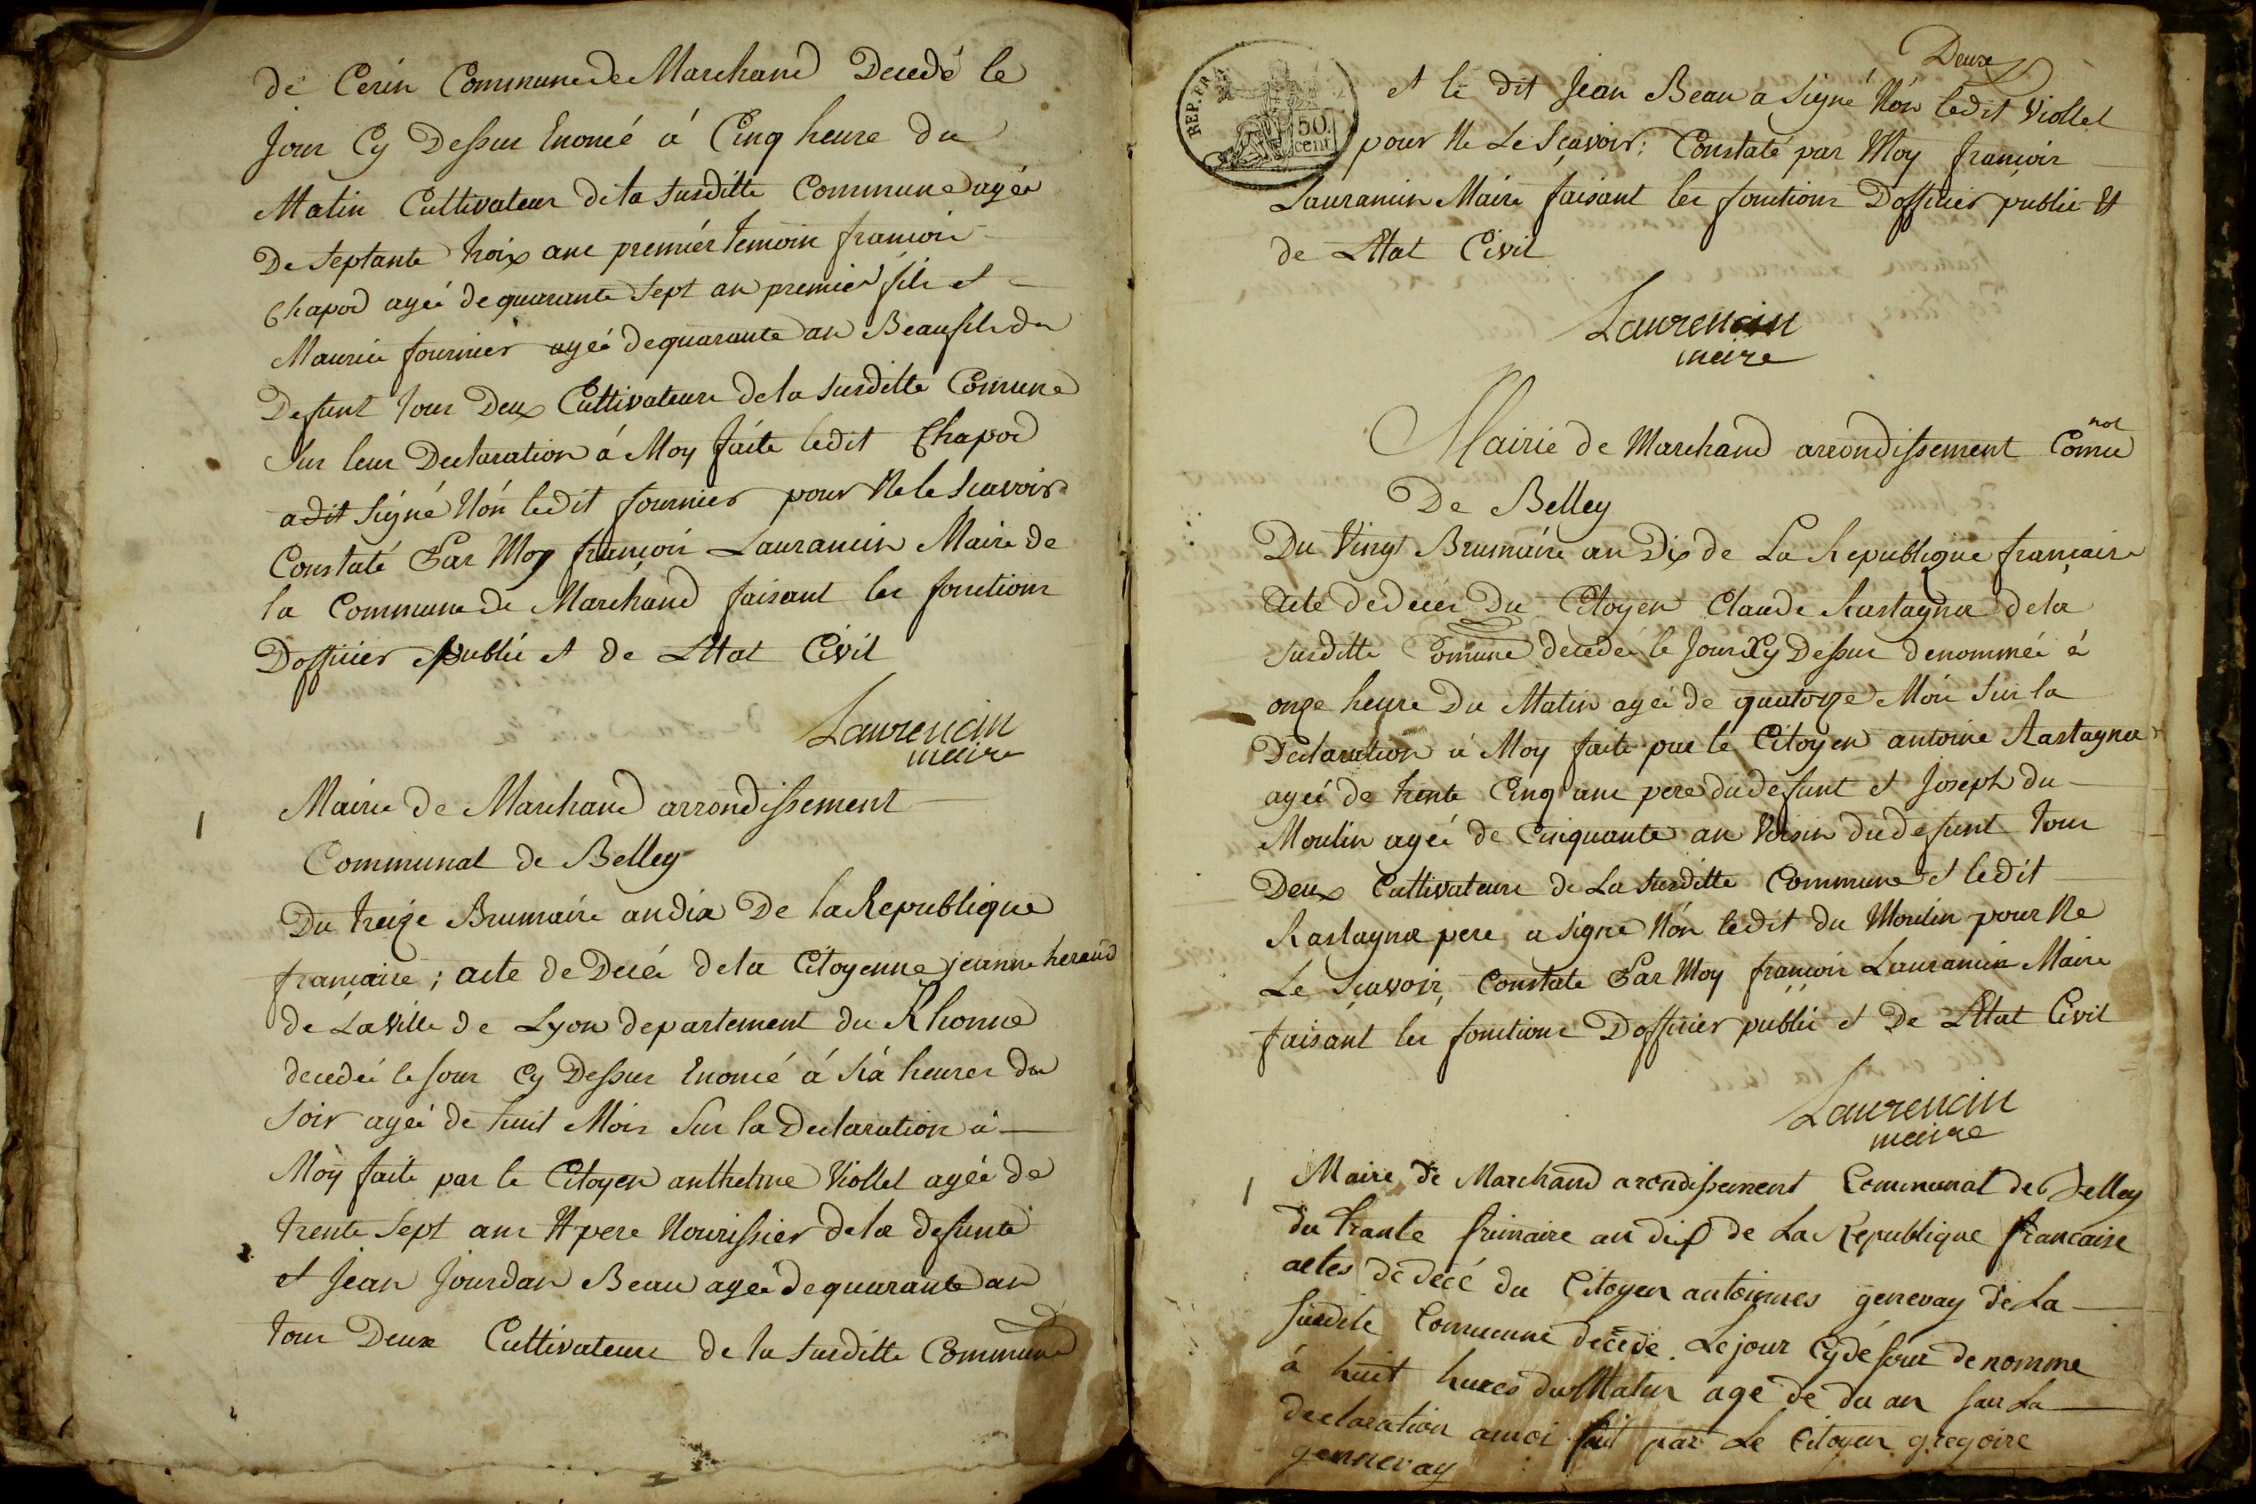 de Cerin Commune de Marchand Decedé le
Jour Cy Dessus Enoncé á Cinq heure du
Matin Cultivateur de la susditte Commune agée
De septante troix ans premiér temoin francois
Chapod agée de quarante sept an premier fils et
Maurice fournier agée de quarante an Beaufils du
Defunt tous Deux Cultivateurs de la susditte Comune
sur leur Declaration á Moy faite ledit Chapod
adit signé Nón ledit fournier pour Ne le scavoir
Constaté Par Moy françois Laurancin Maire de
la Commune de Marchand faisant les fonctions
Dofficier Public et de LEtat Civil
Laurencin
maire
1
Mairie de Marchand arrondissement
Communal de Belley
Du treize Brumaire an dix De la Republique
française ; acte de Decée de la Citoyenne jeanne heraud
de La Ville de Lyon departement du Rhonne
decedée le Jour Cy Dessus Enoncé á six heures du
soir agée de huit Mois sur la Declaration á
Moy faite par le Citoyen anthelme Viollet agée de
trente sept ans Et pere Nourissier de la defunte
et Jean Jourdan Beau agée de quarante an
tous Deux Cultivateurs de la susditte Commune
Deux
REP. FRA
50.
cent
et le dit Jean Beau a signé Nón ledit Viollet
pour Ne Le Scavoir ; Constaté par Moy françois
Laurancin Maire faisant les fonctions Dofficier public Et
de LEtat Civil
Laurencin
maire
Mairie de Marchand arrondissement Comunal
De Belley
Du Vingt Brumaire an Dix de La Republique française
acte de decés Du Citoyen Claude Rastagna de la
susditte Comune decedée le Jour Cy Dessus denommée á
onze heure Du Matin agée de quatorze Mois sur la
Declaration á Moy faite par le Citoyen antoine Rastagna
agée de trente Cinq ans pere du defunt et Joseph du
Moulin agée de Cinquante an Voisin du defunt tous
Deux Cultivateurs de La susditte Commune et ledit
Rastagna pere a signé Nón ledit du Moulin pour Ne
Le Scavoir, Constate Par Moy françois Laurancin Maire
faisant les fonctions Dofficier public et De LEtat Civil
Laurencin
maire
1
Maire de Marchand arondissement Communal de Belley
du trante frimaire an dix de La Republique francaise
actes de décé du Citoyen antoinnes genevay de La
susdite Commune décédé Le jour Cy désour denomme
á huit hures du Matin age de du an sur La
declaration amoi fait par Le Citoyen gregoire
gennevay